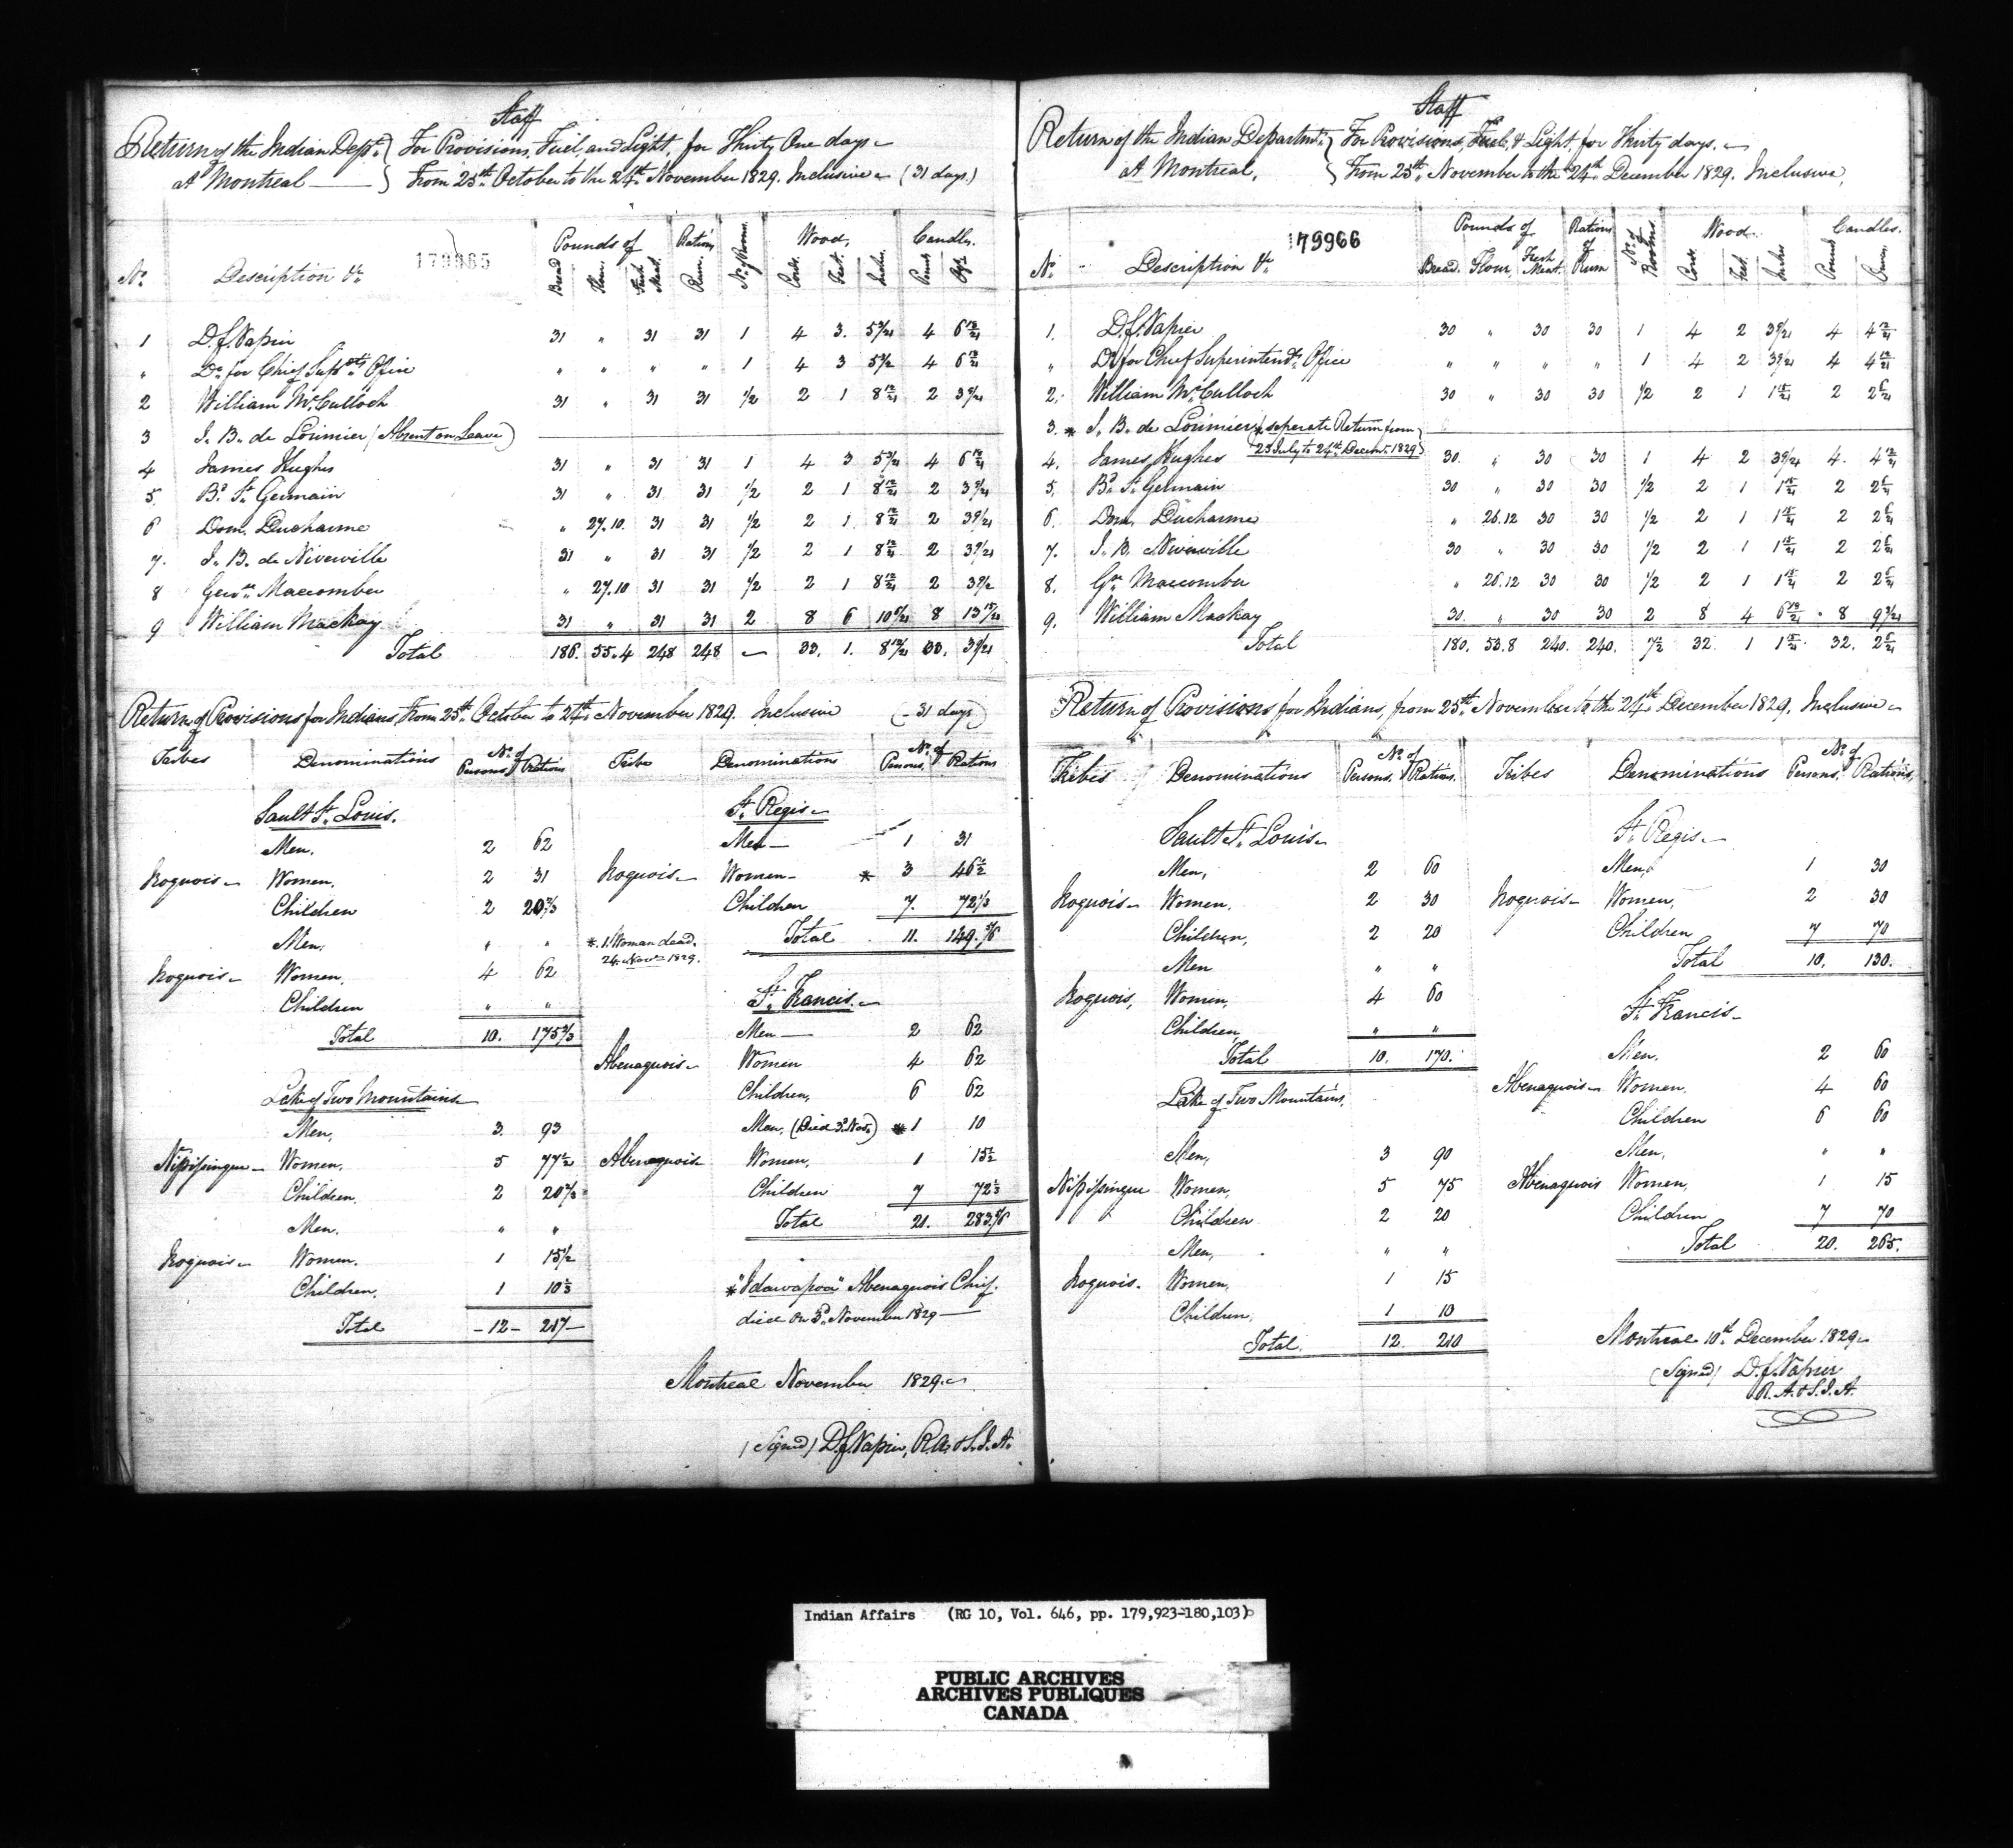 Staff
Return of the Indian Dept. } For Provisions, Fuel, and Light, for Thirty One days
at Montreal } From 25th October to the 24th November 1829. Inclusive (31 days)
179965
No. Description &c. Pounds of Bread Flour Fresh Meat Rations Rum No. of Rooms Wood, Cords Feet Inches Candles. Pounds Ozs.
1 D. C. Napier 31 " 31 31 1 4 3. 5 3/21 4 6 12/21
" Do. for Chief Supdts. Office " " " " 1 4 3 5 3/2 4 6 12/21
2 William McCulloch 31 " 31 31 1/2 2 1 8 12/21 2 3 9/21
3 J. B. de Lorimier (Absent on Leave)
4 James Hughes 31 " 31 31 1 4 3 5 3/21 4 6 12/21
5. Bd. St. Germain 31 " 31 31 1/2 2 1 8 12/21 2 3 9/21
6 Dom. Ducharme " 27.10. 31 31 1/2 2 1 8 12/21 2 3 9/21
7. J. B. de Niverville 31 " 31 31 1/2 2 1 8 12/21 2 3 9/21
8 Gervse. Maccomber " 27.10 31 31 1/2 2 1 8 12/21 2 3 9/2
9 William Mackay 31 " 31 31 2 8 6 10 6/21 8 13 15/21
Total 186. 55.4 248 248 — 33. 1. 8 12/21 33. 3 9/21
Return of Provisions for Indians, From 25th October to 24th November 1829. Inclusive (31 days)
Tribes Denominations No. of Persons, Rations Tribe Denominations No. of Persons. Rations
Sault St. Louis.
Men. 2 62
Iroquois Women. 2 31
Children 2 20 2/3
Men. " "
Iroquois Women. 4 62
Children " "
Total 10. 175 2/3
Lake of Two Mountains
Men, 3. 93
Nipissingue Women. 5 77 1/2
Children. 2 20 2/3
Men. " "
Iroquois Women. 1 15 1/2
Children. 1 10 1/3
Total - 12 - 217
St. Regis
Men 1 31
Iroquois Women * 3 46 1/2
Children 7. 72 1/3
* 1 Woman dead. Total 11. 149. 5/6
24 Novr. 1829.
St. Francis.
Men 2 62
Abenaquois Women 4 62
Children, 6 62
Man, (Died 3d. Nov.) * 1 10
Abenaquois Women, 1 15 1/2
Children 7 72 1/3
Total 21. 283. 5/6
* Abenaquois Chief.
died on 3d. November 1829
Montreal November 1829.
(Signed) D. C. Napier, R. A. & S. I. A.
Staff
Return of the Indian Departmt. } For Provisions, Fuel, & Light, for Thirty days.
at Montreal. } From 25th. November to the 24th December 1829. Inclusive,
79966
No. Description &c. Pounds of Bread. Flour, Fresh Meat. Rations of Rum No. of Rooms Wood. Cords Feet Inches Candles. Pounds Ounces
1. D. C. Napier 30 " 30 30 1 4 2 3 9/21 4 4 12/21
" Do. for Chief Superintendts. Office " " " " 1 4 2 3 9/21 4 4 12/21
2. William McCulloch 30 " 30 30 1/2 2 1 1 15/21 2 2 6/21
3. * J. B. de Lorimier (* seperate Return from
25 July to 24th. Decemr. 1829)
4. James Hughes 30. " 30 30 1 4 2 3 9/21 4. 4 12/21
5. Bd. St. Germain 30 " 30 30 1/2 2 1 1 15/21 2 2 6/21
6. Dom. Ducharme " 26.12 30 30 1/2 2 1 1 15/21 2 2 6/21
7. J. B. Niverville 30 " 30 30 1/2 2 1 1 15/21 2 2 6/21
8. Gse. Maccomber " 26.12 30 30 1/2 2 1 1 15/21 2 2 6/21
9. William Mackay 30. " 30 30 2 8 4 6 18/21 8 9 3/21
Total 180. 53.8 240. 240. 7 1/2 32. 1 1 15/21 32. 2 6/21
Return of Provisions for Indians, from 25th. November to the 24th December 1829. Inclusive
Tribes Denominations No. of Persons. Rations. Tribes Denominations No. of Persons. Rations,
Sault St. Louis
Men, 2 60
Iroquois Women. 2 30
Children, 2 20
Men " "
Iroquois, Women, 4 60
Children, " "
Total 10. 170.
Lake of Two Mountains.
Men, 3 90
Nipissingue Women, 5 75
Children 2 20
Men, " "
Iroquois. Women, 1 15
Children, 1 10
Total. 12. 210
St. Regis
Men, 1 30
Iroquois Women, 2 30
Children 7 70
Total 10. 130.
St. Francis
Men. 2 60
Abenaquois Women. 4 60
Children 6 60
Men, " "
Abenaquois Women, 1 15
Children 7 70
Total 20. 265.
Montreal 10th December 1829
(Signed) D. C. Napier
R. A. & S. I. A.
Indian Affairs (RG 10, Vol. 646, pp. 179,923-180,103)
PUBLIC ARCHIVES
ARCHIVES PUBLIQUES
CANADA